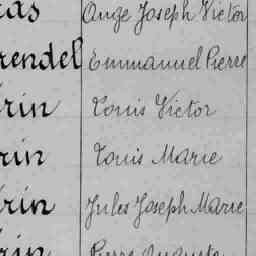 as Ange Joseph Victor
rendel Emmanuel Pierre
rin Louis Victor
rin Louis Marie
rin Jules Joseph Marie
rin Pierre Auguste